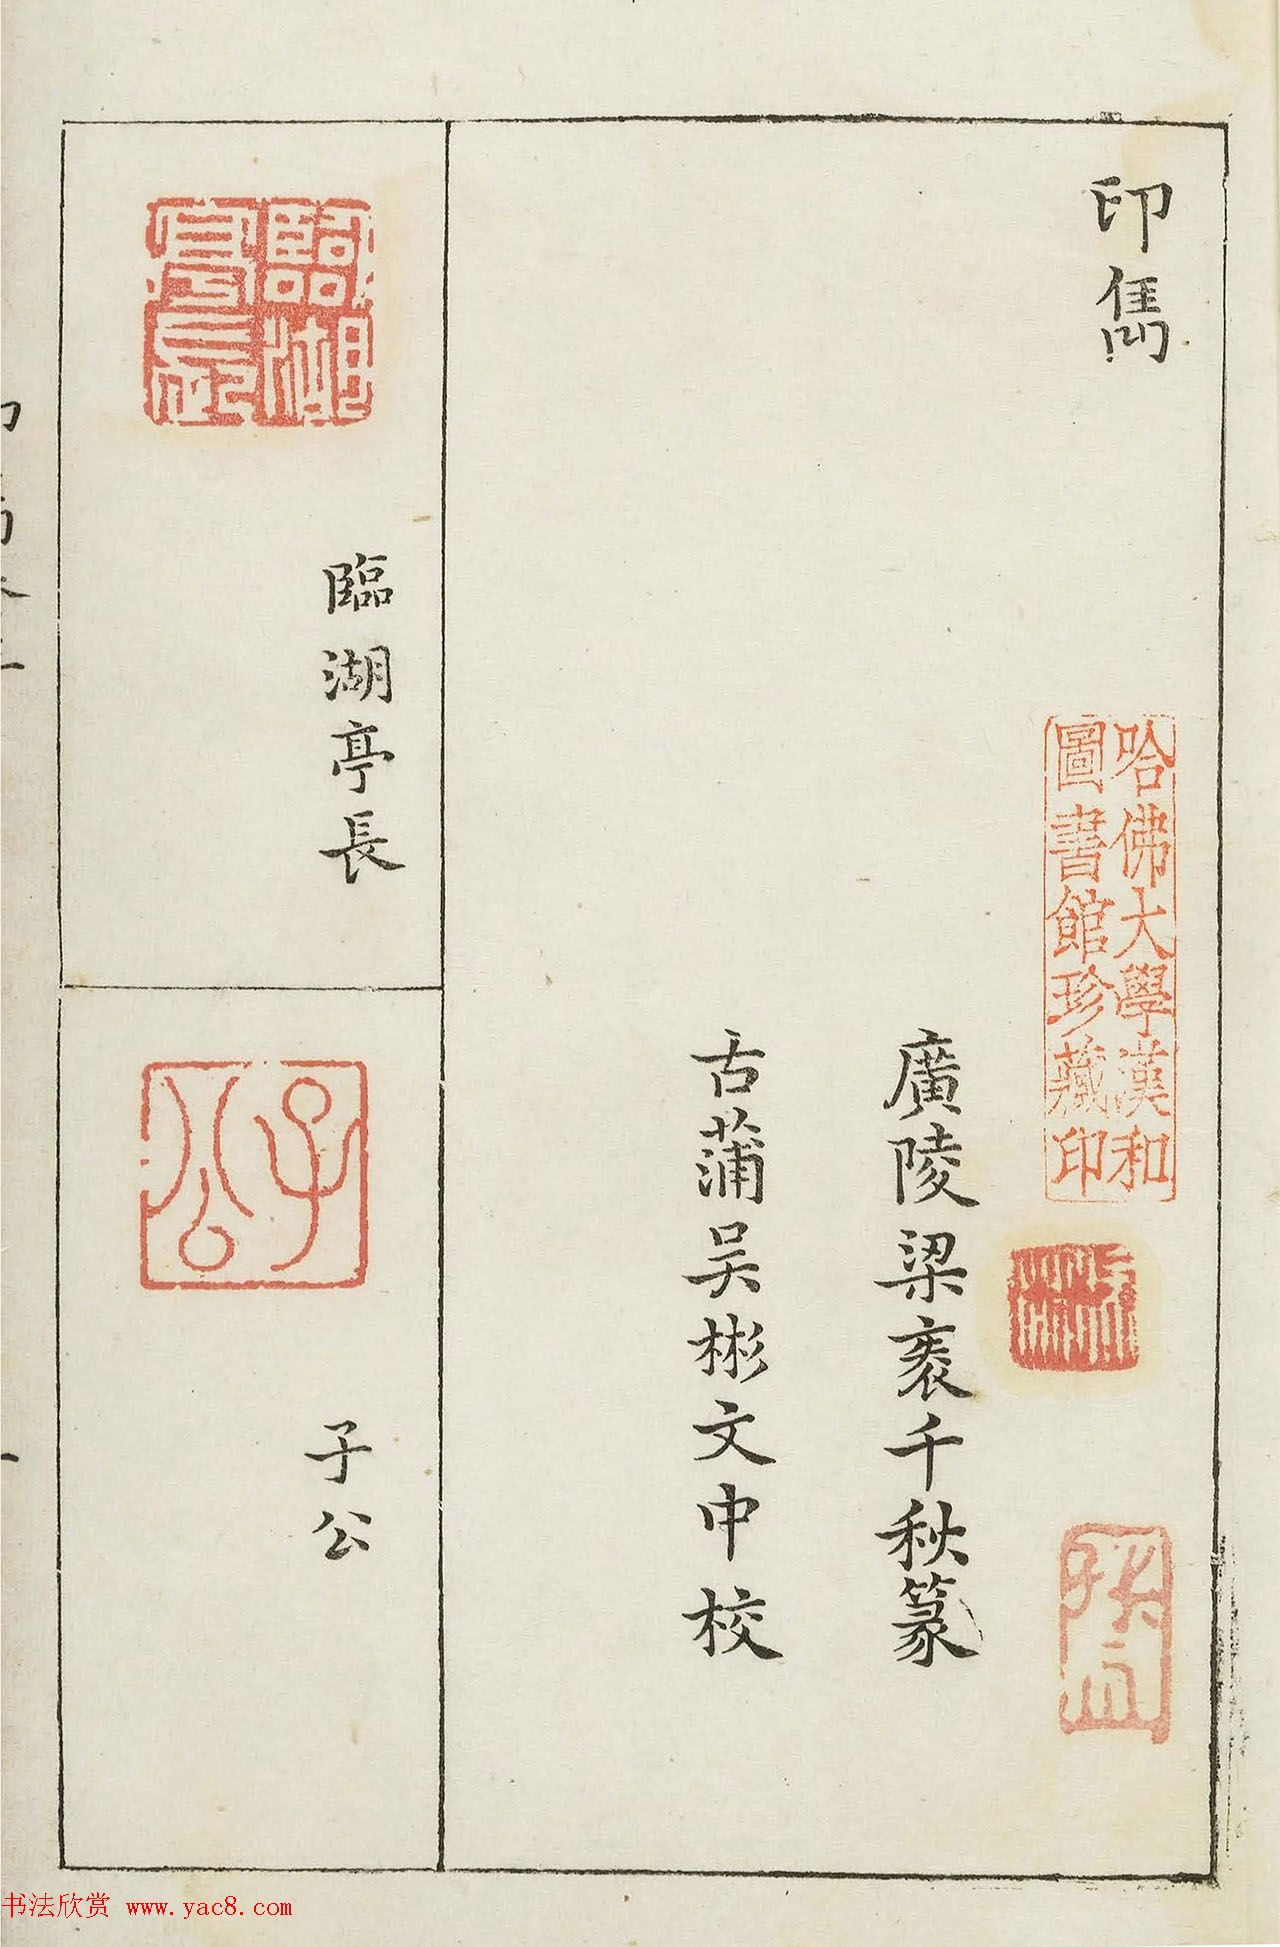 印雋
哈佛大學漢和
圖書館珍藏印
廣陵梁袠千秋篆
古蒲吴彬文中校
臨湖亭長
臨湖亭長
子公
子公
书法欣赏 www.yac8.com